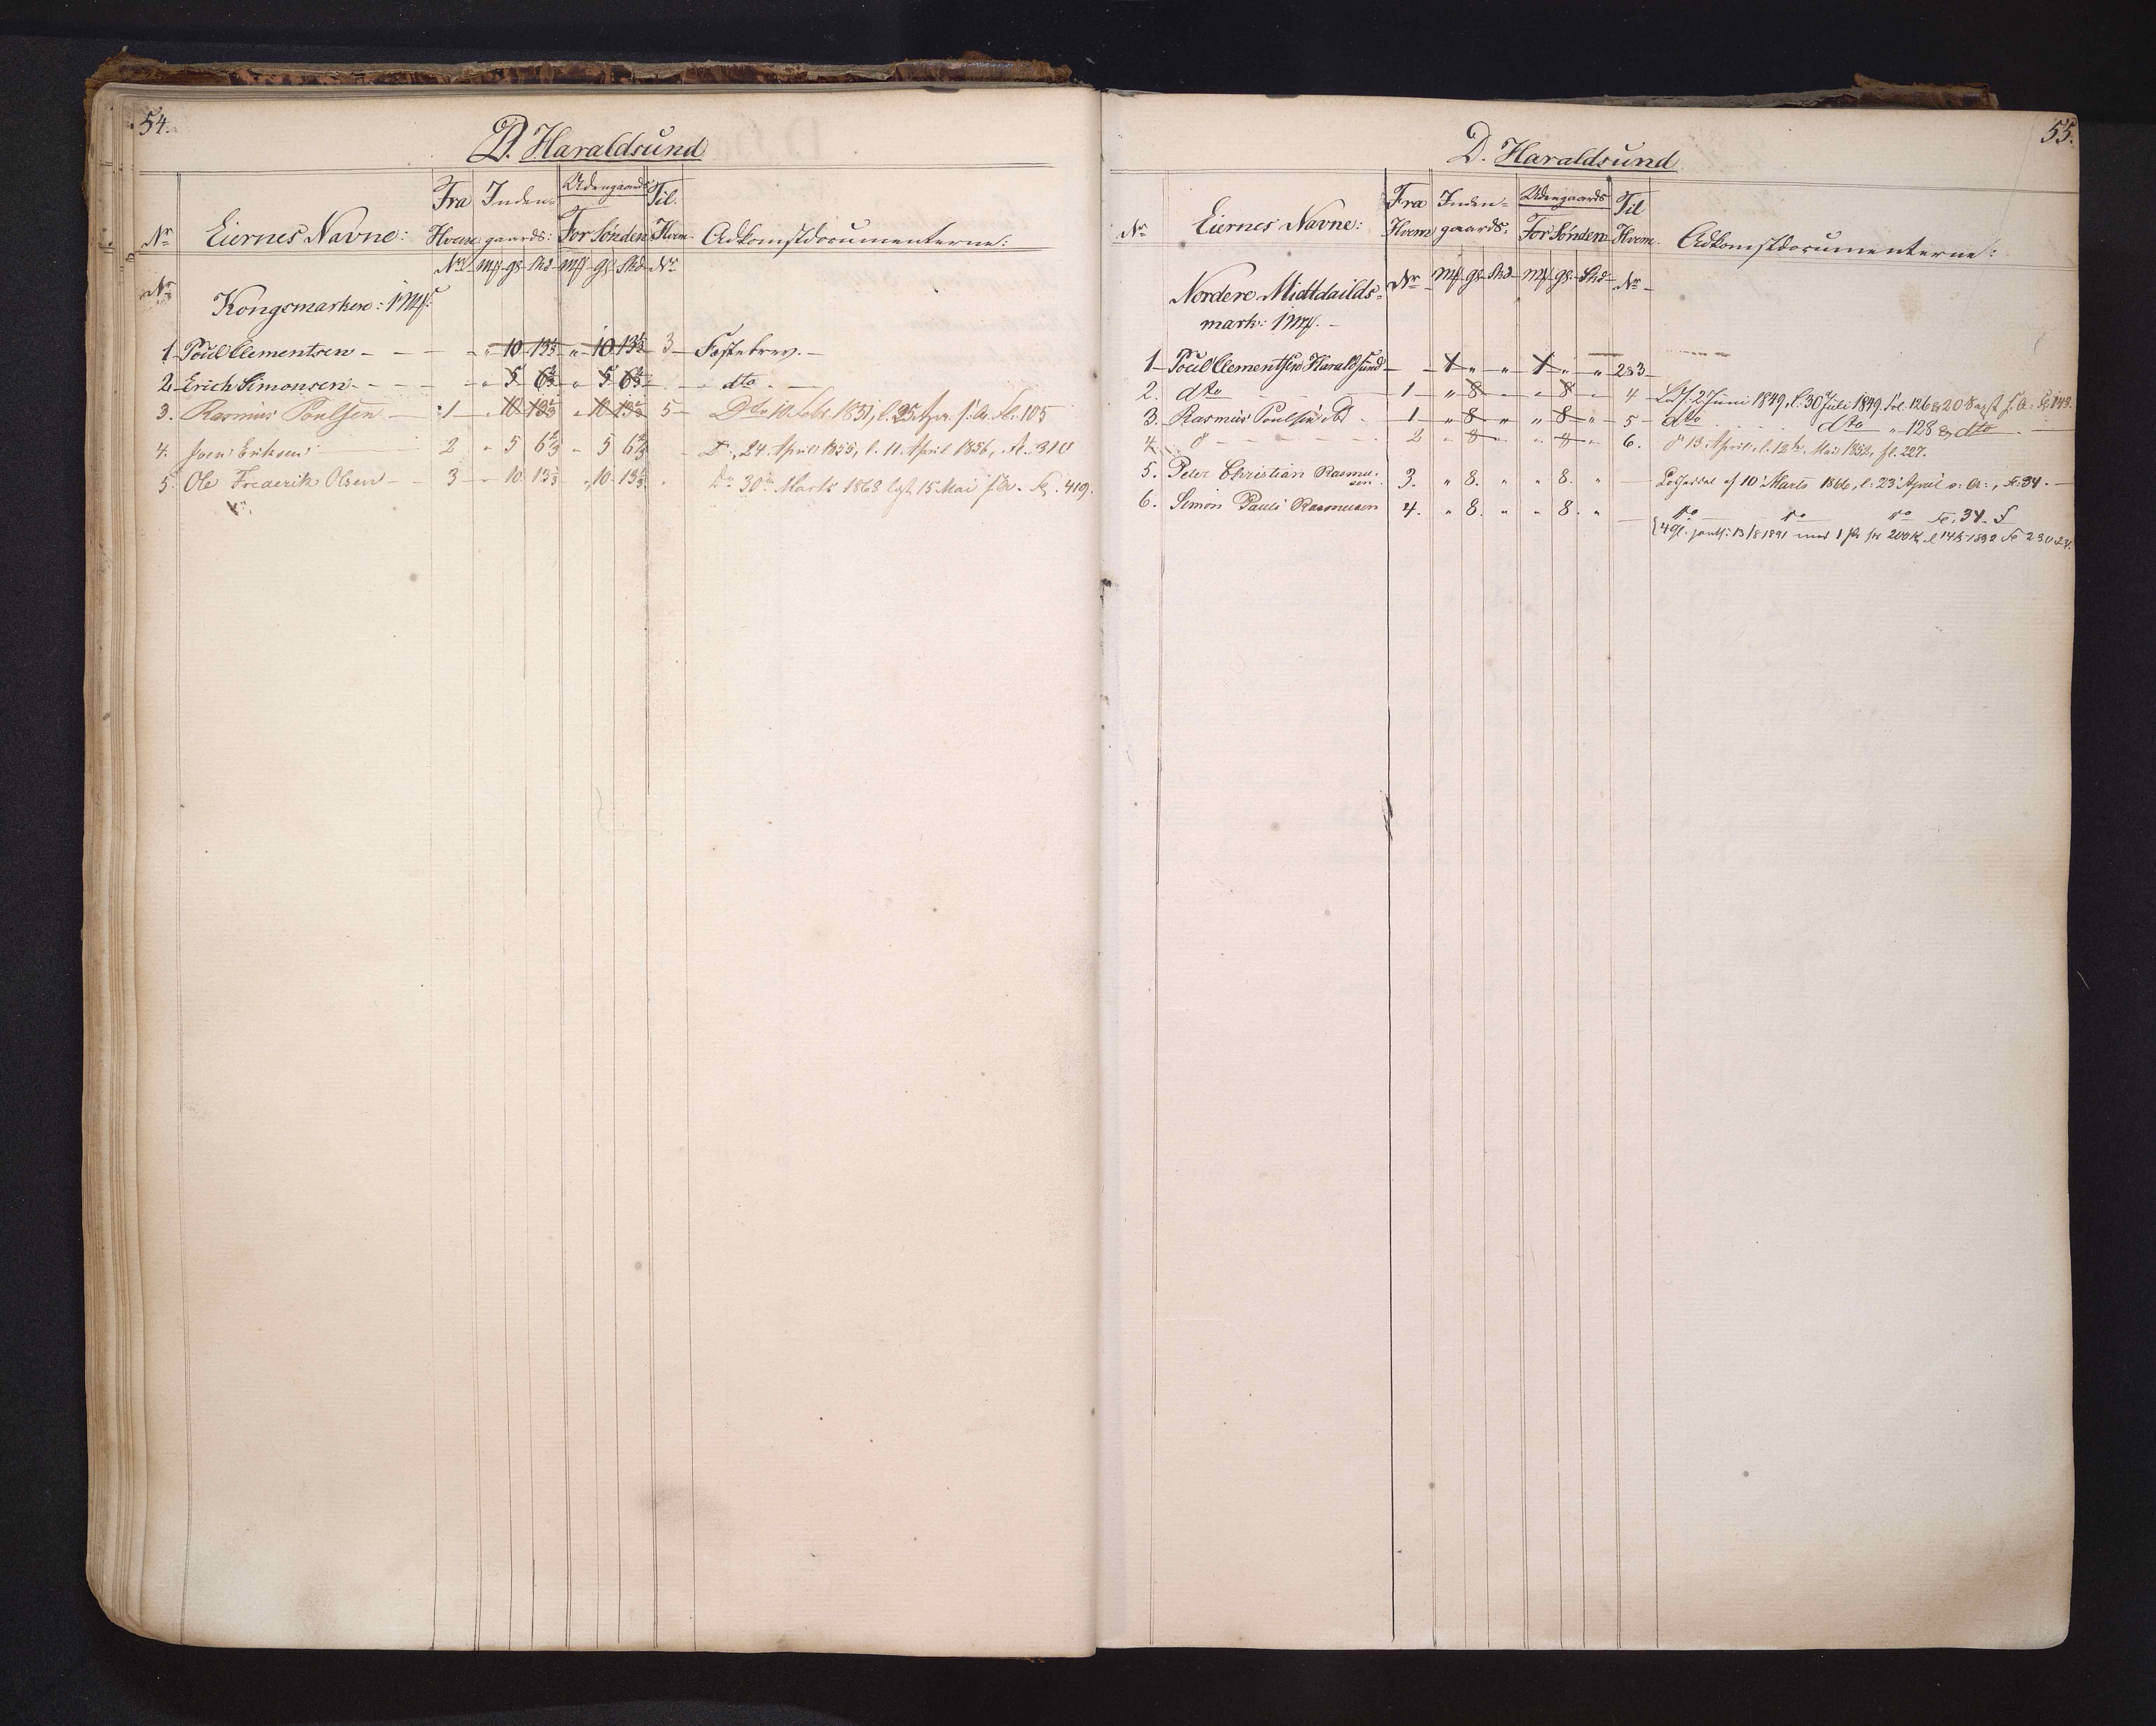 54.
D. Haraldsund
Nr Eiernes Navne: Fra Hvem Inden= gaards: Udengaards For Sønden Til Hvem Adkomstdocumenterne:
Nr Mk gl. Skd Mk gl. Skd Nr
Nr
Kongsmarken: 1 Mk:
1 Poul Clementsen - - - - " 10 13⅓ " 10 13⅓ 3 - Fæstebrev. -
2 Erich Simonsen - - - - " 5 6⅔ " 5 6⅔ - dto. -
3. Rasmus Poulsen - 1 - " 10 13⅓ " 10 13⅓ 5 - Dto 1851, l. 25 s. A. Fl. 105
4. Joen Eriksen 2 " 5 6⅔ " 5 6⅔ - Do, 24 April 1855, l. 11 April 1856, Fl. 310
5. Ole Frederik Olsen - 3 - " 10 13⅓ " 10 13⅓ " Do 30te Marts 1868 lgst. 15 Mai s. A. Fl. 419.
55.
D. Haraldsund
Nr Eiernes Navne: Fra Hvem Inden= gaards: Udengaards For Sønden Til Hvem. Adkomstdocumenterne:
Nr Mk gl. Skd Mk gl. Skd Nr
Nordere Midtdailds=
mark: 1 Mk. -
1 - Poul Clementsen Haraldsund - 1 " " 1 " " 2&3
2. dto 1 - " 8 - " 8 - 4 - 2 Juni 1849, l. 30 Juli 1849 Fol. 126 & 208
3. Rasmus Poulsen ibd 1 - " 8 " " 8 " 5 - dto dto " 128 & dto
4. do - - - 2 " 8 " " 8 " 6. do 13 April, l. 12te Mai 1852, fl. 227.
5. Peter Christian Rasmu=
sen 3. " 8. " " 8. " - 10 Marts 1866, l: 23 April s: A:, Fl: 34. -
6. Simon Pauli Rasmussen 4. " 8. " " 8. " - do do do Fl: 34.
4 gl. 13/8 1891 1892 Fl 230